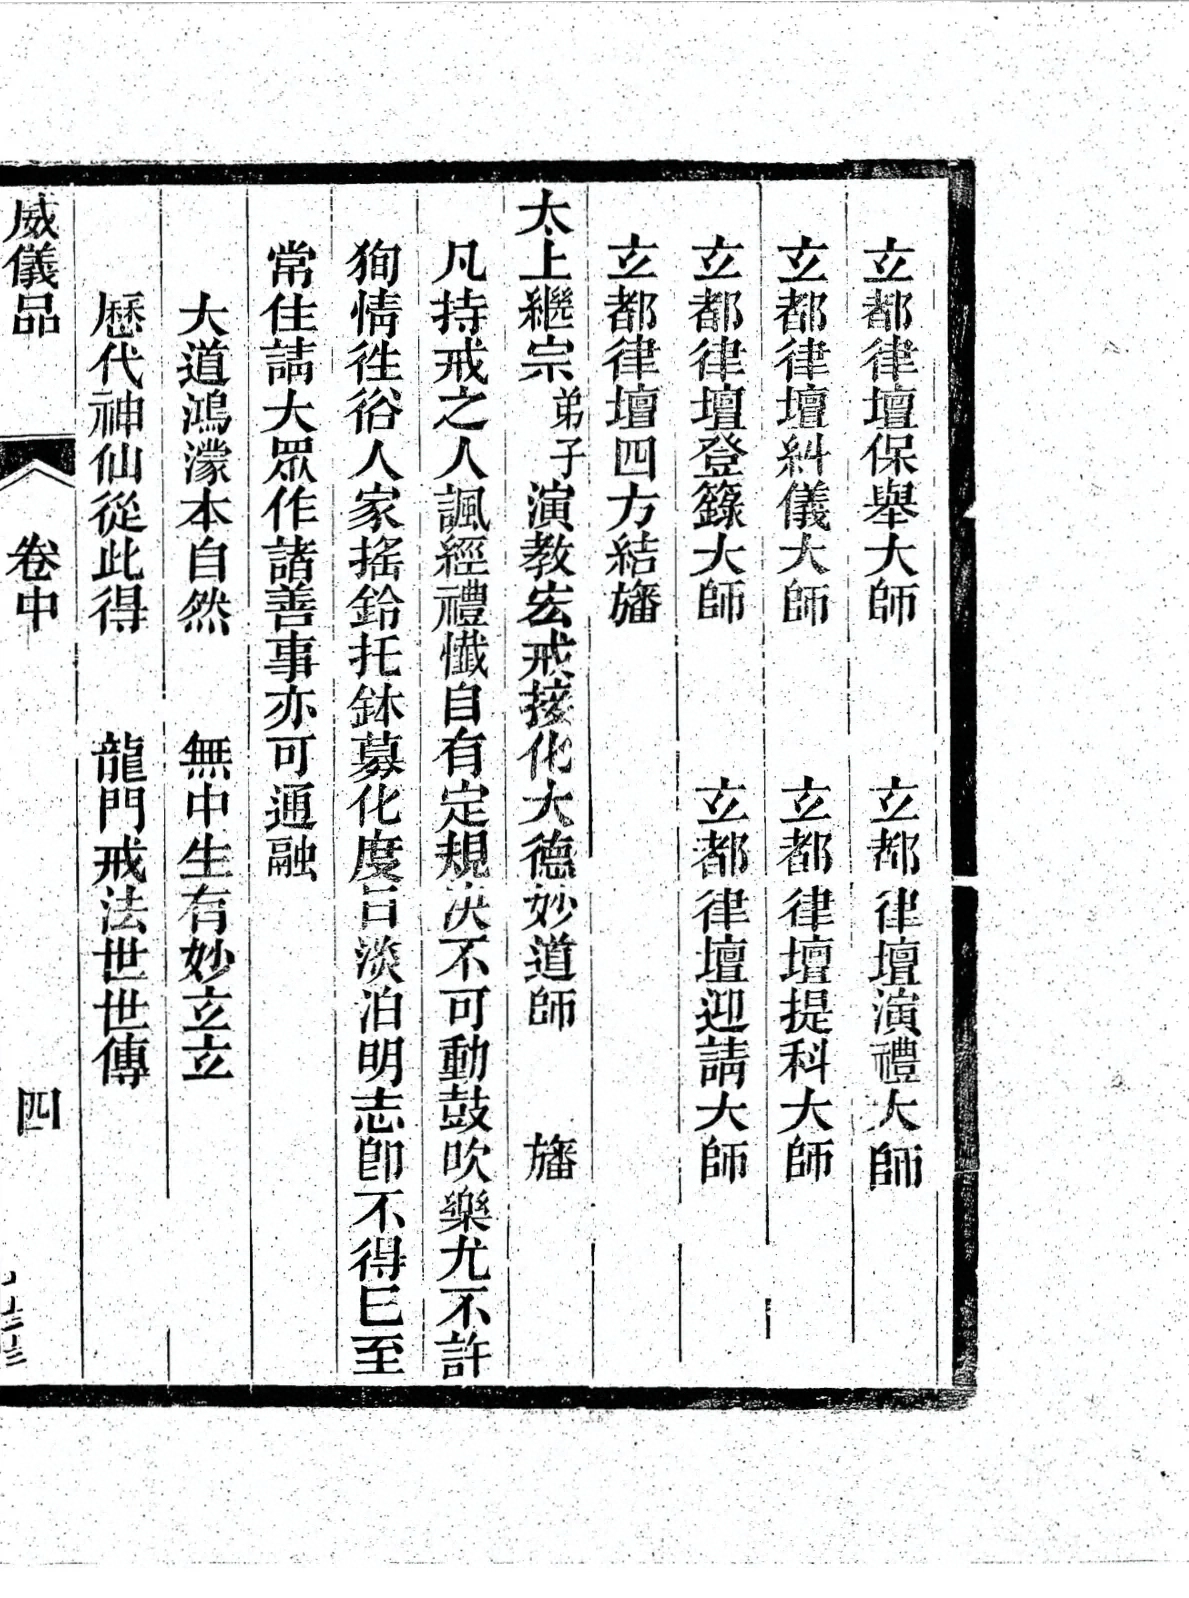 玄都律壇保舉大師 玄都律壇演禮大師
玄都律壇糾儀大師 玄都律壇提科大師
玄都律壇登籙大師 玄都律壇迎請大師
玄都律壇四方結旛
太上繼宗弟子演教宏戒接化大德妙道師 旛
凡持戒之人諷經禮懺自有定規決不可動鼓吹樂尤不許
狥情徃俗人家搖鈴托鉢募化度日淡泊明志卽不得已至
常住請大眾作諸善事亦可通融
大道鴻濛本自然 無中生有妙玄玄
歷代神仙從此得 龍門戒法世世傳
威儀品 卷中 四